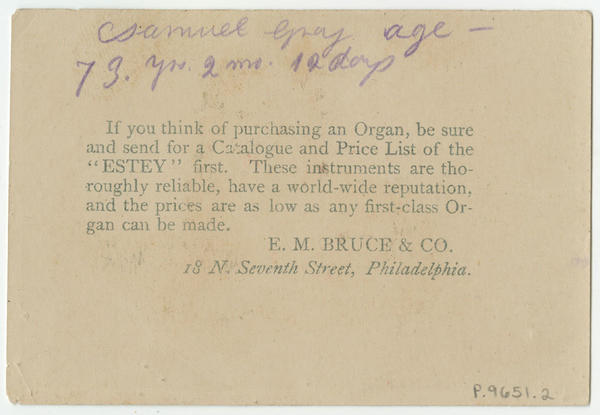 Samuel Gray age —
73. yrs. 2 mo. 12 days
If you think of purchasing an Organ, be sure
and send for a Catalogue and Price List of the
“ESTEY” first. These instruments are tho-
roughly reliable, have a world-wide reputation,
and the prices are as low as any first-class Or-
gan can be made.
E. M. BRUCE & CO.
18 N. Seventh Street, Philadelphia.
P.9651.2